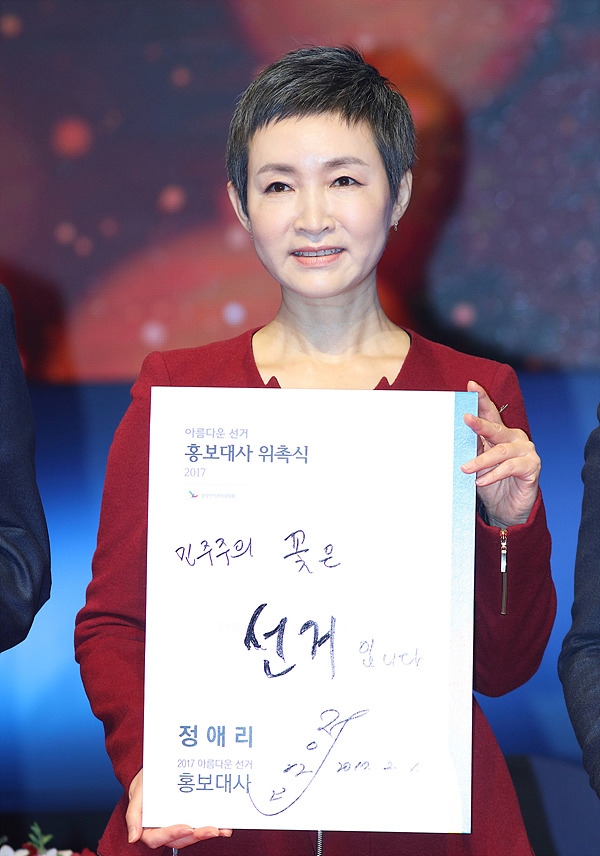 아름다운 선거
홍보대사 위촉식
2017
민주주의 꽃은
선거 입니다
정애리
2017 아름다운 선거
홍보대사